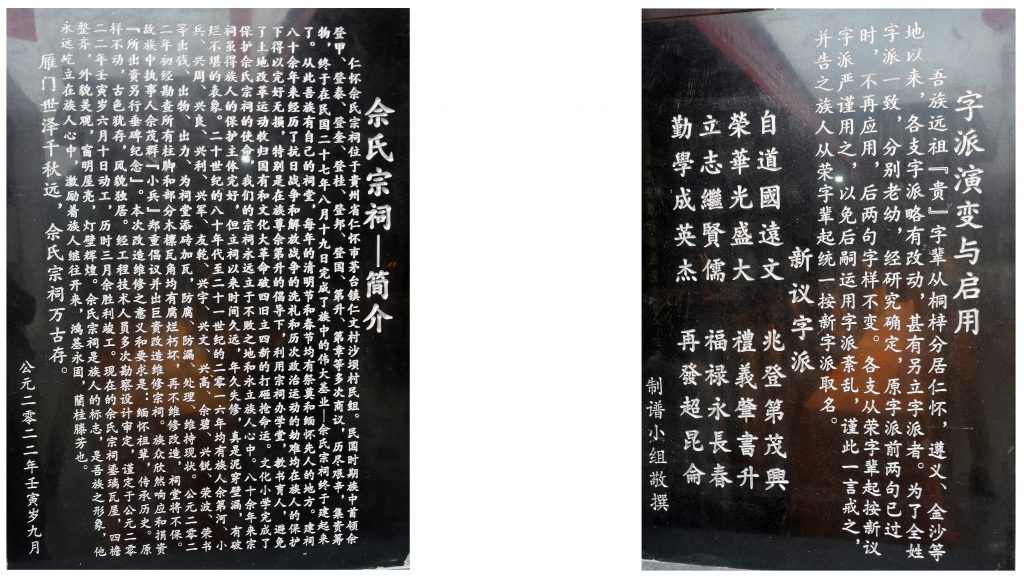 佘氏宗祠—简介
仁怀佘氏宗祠位于贵州省仁怀市茅台镇仁文村沙坝村民组。民国时期族中首领佘
登甲、登泰、登奎、登桂、登邦、登国、第升、第章等多次商议，历尽艰辛，集资筹
物，终于在民国二十七年八月十九日完成了族中的伟大基业—佘氏宗祠终于建起来
了。从此吾族有自己的祠堂，每年的清明节和春节均有祭奠和缅怀先人的地方。建祠
八十余年来经历了抗日战争和解放战争的洗礼和历次政治运动的劫难均在族人的保护
下得以完好无损，特别是在族尊佘第升的倡导下，利用宗祠办学堂，教书育人，避免
了土地改革运动收归国有和文化大革命破四旧立四新的打砸抢命运。文化小学完成了
保护佘氏宗祠的使命，我们的宗祠永远立于不败之地和永立族人心中，八十余年来宗
祠虽得族人的保护主体完好，但立祠以来时间久远，年久失修，真是泥穿壁漏，有破
烂不堪的衰象。二十世纪的八十年代至二十一世纪的二零一六年均有族人佘第河、小
兵、兴周、兴良、兴利、兴军、友乾、兴宇、兴文、兴高、佘碧、兴锐、荣波、荣书
等出钱、出物、出力、为祠堂添砖加瓦、防腐、防漏，处理、维持现状。公元二零二
二年初经勘查所有柱脚和部分木檩瓦角均有腐烂朽坏，再不维修改造，祠堂将不保。
故族中执事人佘茂群『小兵』郑重倡议并出巨资改造维修宗祠。族众欣然响应和捐资
『所出资另行垂碑纪念』。本次改造维修之意义和要求是：缅怀祖辈，传承历史。原
样不动，古色犹存，风貌独居。经工程技术人员多次勘察设计审定，谨定于公元二零
二二年壬寅岁六月十日动工，历时三月余胜利竣工。现在的佘氏宗祠鎏璃瓦屋，四檐
整齐，外貌美观，窗明屋亮，灯壁辉煌。佘氏宗祠是族人的标志，是吾族之形象，他
永远屹立在族人心中，激励着族人继往开来，鸿基永固，蘭桂腾芳也。
雁门世泽千秋远，佘氏宗祠万古存。
公元二零二二年壬寅岁九月
字派演变与启用
吾族远祖『贵』字辈从桐梓分居仁怀，遵义、金沙等
地以来，各支字派略有改动，甚有另立字派者。为了全姓
字派一致，分别老幼，经研究确定，原字派前两句已过
时，不再应用，后两句字样不变。各支从荣字辈起按新议
字派严谨用之，以免后嗣运用字派紊乱，谨此一言戒之，
并告之族人从荣字辈起统一按新字派取名。
新议字派
自道國遠文 兆登第茂興
榮華光盛大 禮義肇書升
立志繼賢儒 福禄永長春
勤學成英杰 再發超昆侖
制谱小组敬撰